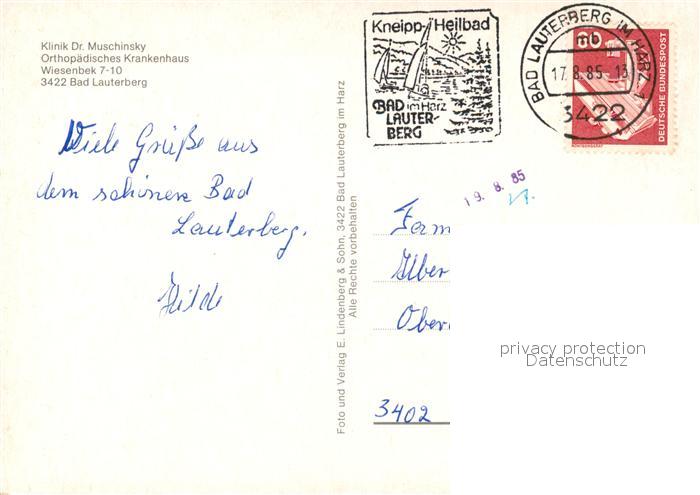 Klinik Dr. Muschinsky
Orthopädisches Krankenhaus
Wiesenbek 7-10
3422 Bad Lauterberg
Viele Grüße aus
dem schönen Bad
Lauterberg.
Hilde
Foto und Verlag E. Lindenberg & Sohn, 3422 Bad Lauterberg im Harz
Alle Rechte vorbehalten
Kneipp-Heilbad
BAD im Harz
LAUTER-
BERG
BAD LAUTERBERG IM HARZ 1
mb
17.8.85-13
3422
80
DEUTSCHE BUNDESPOST
19. 8. 85
Fam
Ober
3402
privacy protection
Datenschutz